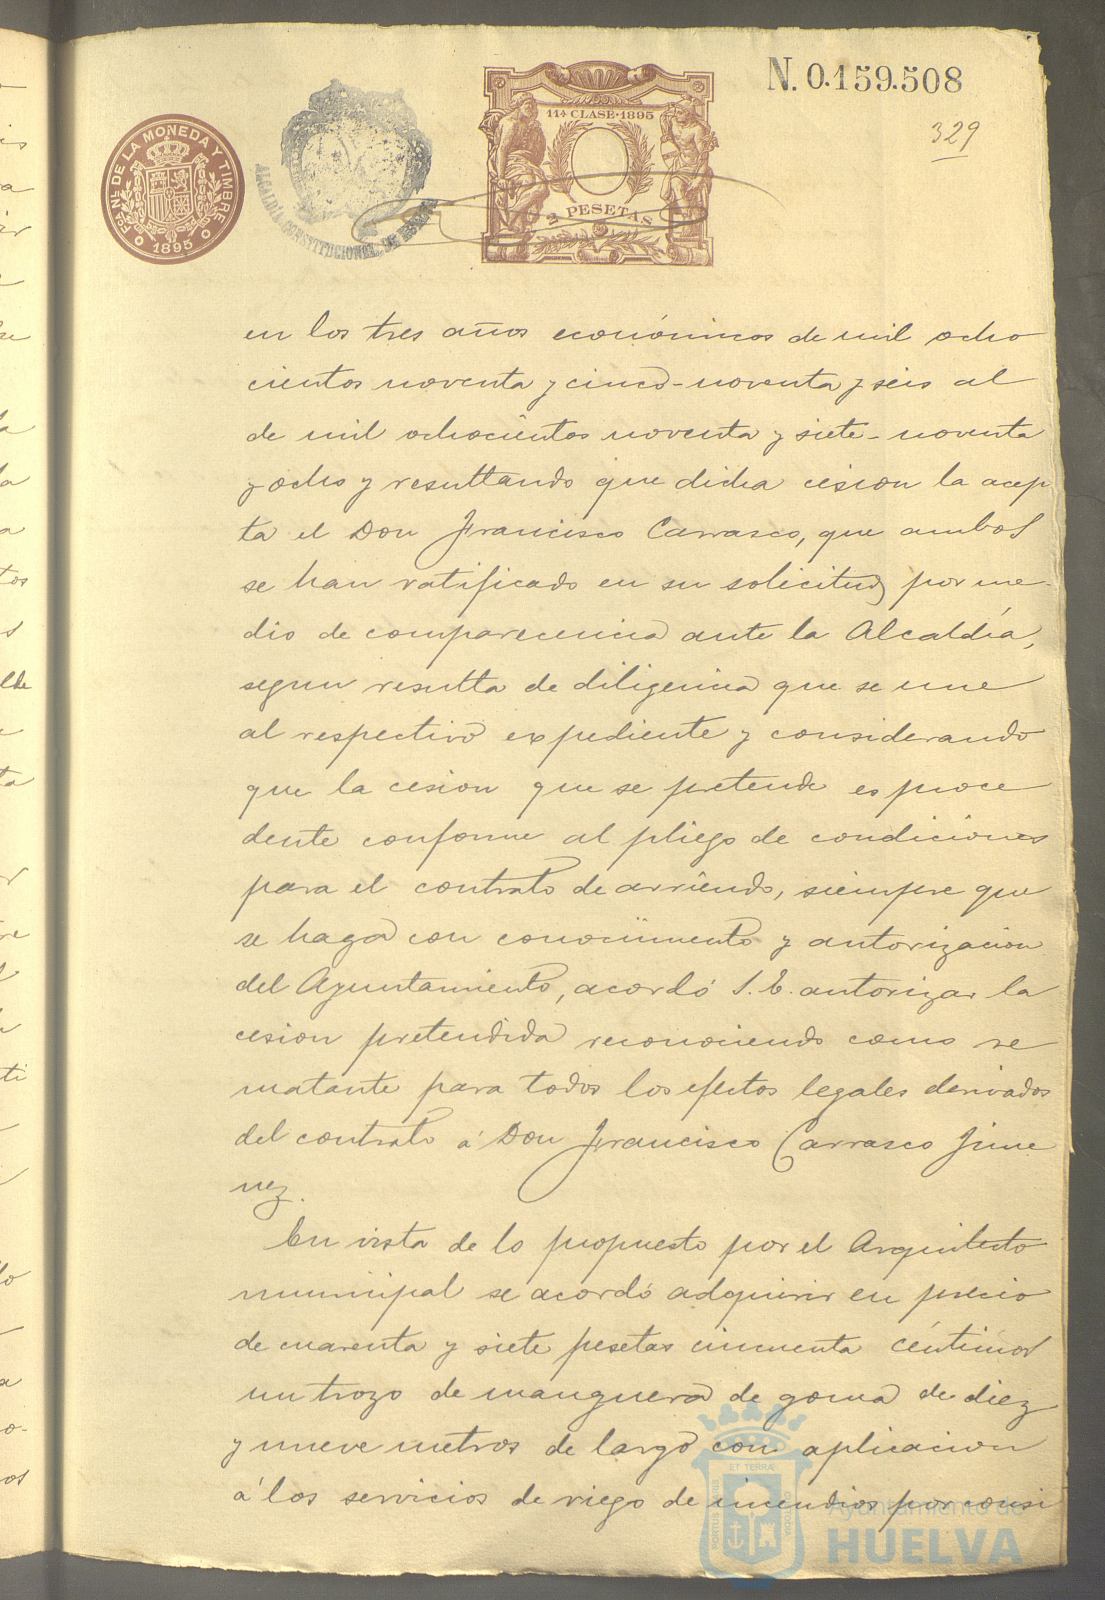 N. 0.159.508
329
11ª CLASE·1895
2 PESETAS
Fca. NL. DE LA MONEDA Y TIMBRE
1895
ALCALDÍA CONSTITUCIONAL DE HUELVA
en los tres años económicos de mil ocho
cientos noventa y cinco-noventa y seis al
de mil ochocientos noventa y siete-noventa
y ocho y resultando que dicha cesion la acep
ta el Don Francisco Carrasco, que ambos
se han ratificado en su solicitud por me-
dio de comparecencia ante la Alcaldía,
segun resulta de diligencia que se une
al respectivo expediente y considerando
que la cesion que se pretende es proce
dente conforme al pliego de condiciones
para el contrato de arriendo, siempre que
se haga con conocimiento y autorizacion
del Ayuntamiento, acordó S. E. autorizar la
cesion pretendida reconociendo como re
matante para todos los efectos legales derivados
del contrato á Don Francisco Carrasco Jime
nez.
En vista de lo propuesto por el Arquitecto
municipal se acordó adquirir en precio
de cuarenta y siete pesetas cincuenta céntimos
un trozo de manguera de goma de diez
y nueve metros de largo con aplicacion
á los servicios de riego de incendios por consi
PORTUS MARIS
ET TERRÆ
CUSTODIA
Ayuntamiento de
HUELVA